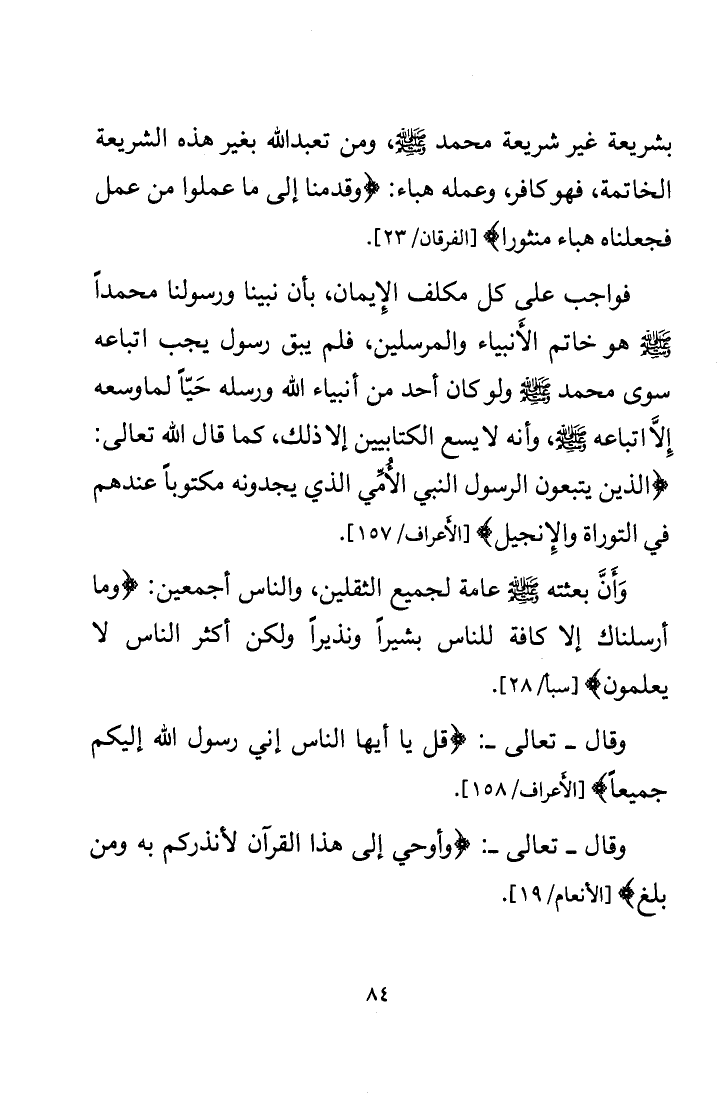 بشريعة غير شريعة محمد ﷺ، ومن تعبدالله بغير هذه الشريعة
الخاتمة، فهو كافر، وعمله هباء: ﴿وقدمنا إلى ما عملوا من عمل
فجعلناه هباء منثورا﴾ [الفرقان/ ٢٣].
فواجب على كل مكلف الإِيمان، بأن نبينا ورسولنا محمداً
ﷺ هو خاتم الأَنبياء والمرسلين، فلم يبق رسول يجب اتباعه
سوى محمد ﷺ ولو كان أحد من أنبياء الله ورسله حَيّاً لماوسعه
إِلاَّ اتباعه ﷺ، وأنه لا يسع الكتابيين إلا ذلك، كما قال الله تعالى:
﴿الذين يتبعون الرسول النبي الأُمِّي الذي يجدونه مكتوباً عندهم
في التوراة والإِنجيل﴾ [الأَعراف/ ١٥٧].
وَأَنَّ بعثته ﷺ عامة لجميع الثقلين، والناس أجمعين: ﴿وما
أرسلناك إلا كافة للناس بشيراً ونذيراً ولكن أكثر الناس لا
يعلمون﴾ [سبأ/ ٢٨].
وقال ـ تعالى ـ: ﴿قل يا أيها الناس إني رسول الله إليكم
جميعاً﴾ [الأَعراف/ ١٥٨].
وقال ـ تعالى ـ: ﴿وأوحي إلى هذا القرآن لأنذركم به ومن
بلغ﴾ [الأنعام/ ١٩].
٨٤